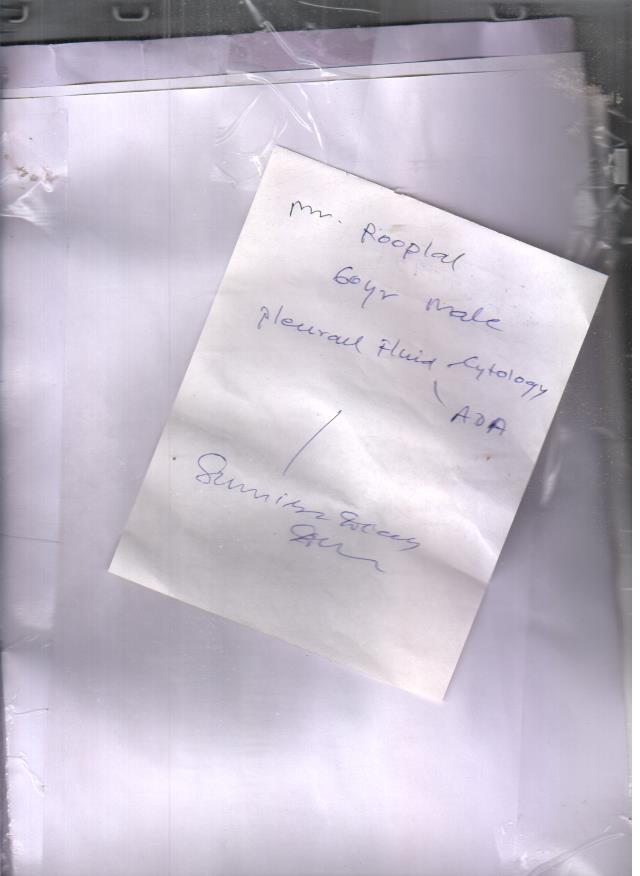 Mr. Rooplal
60yr Male
Pleural Fluid Cytology
ADA